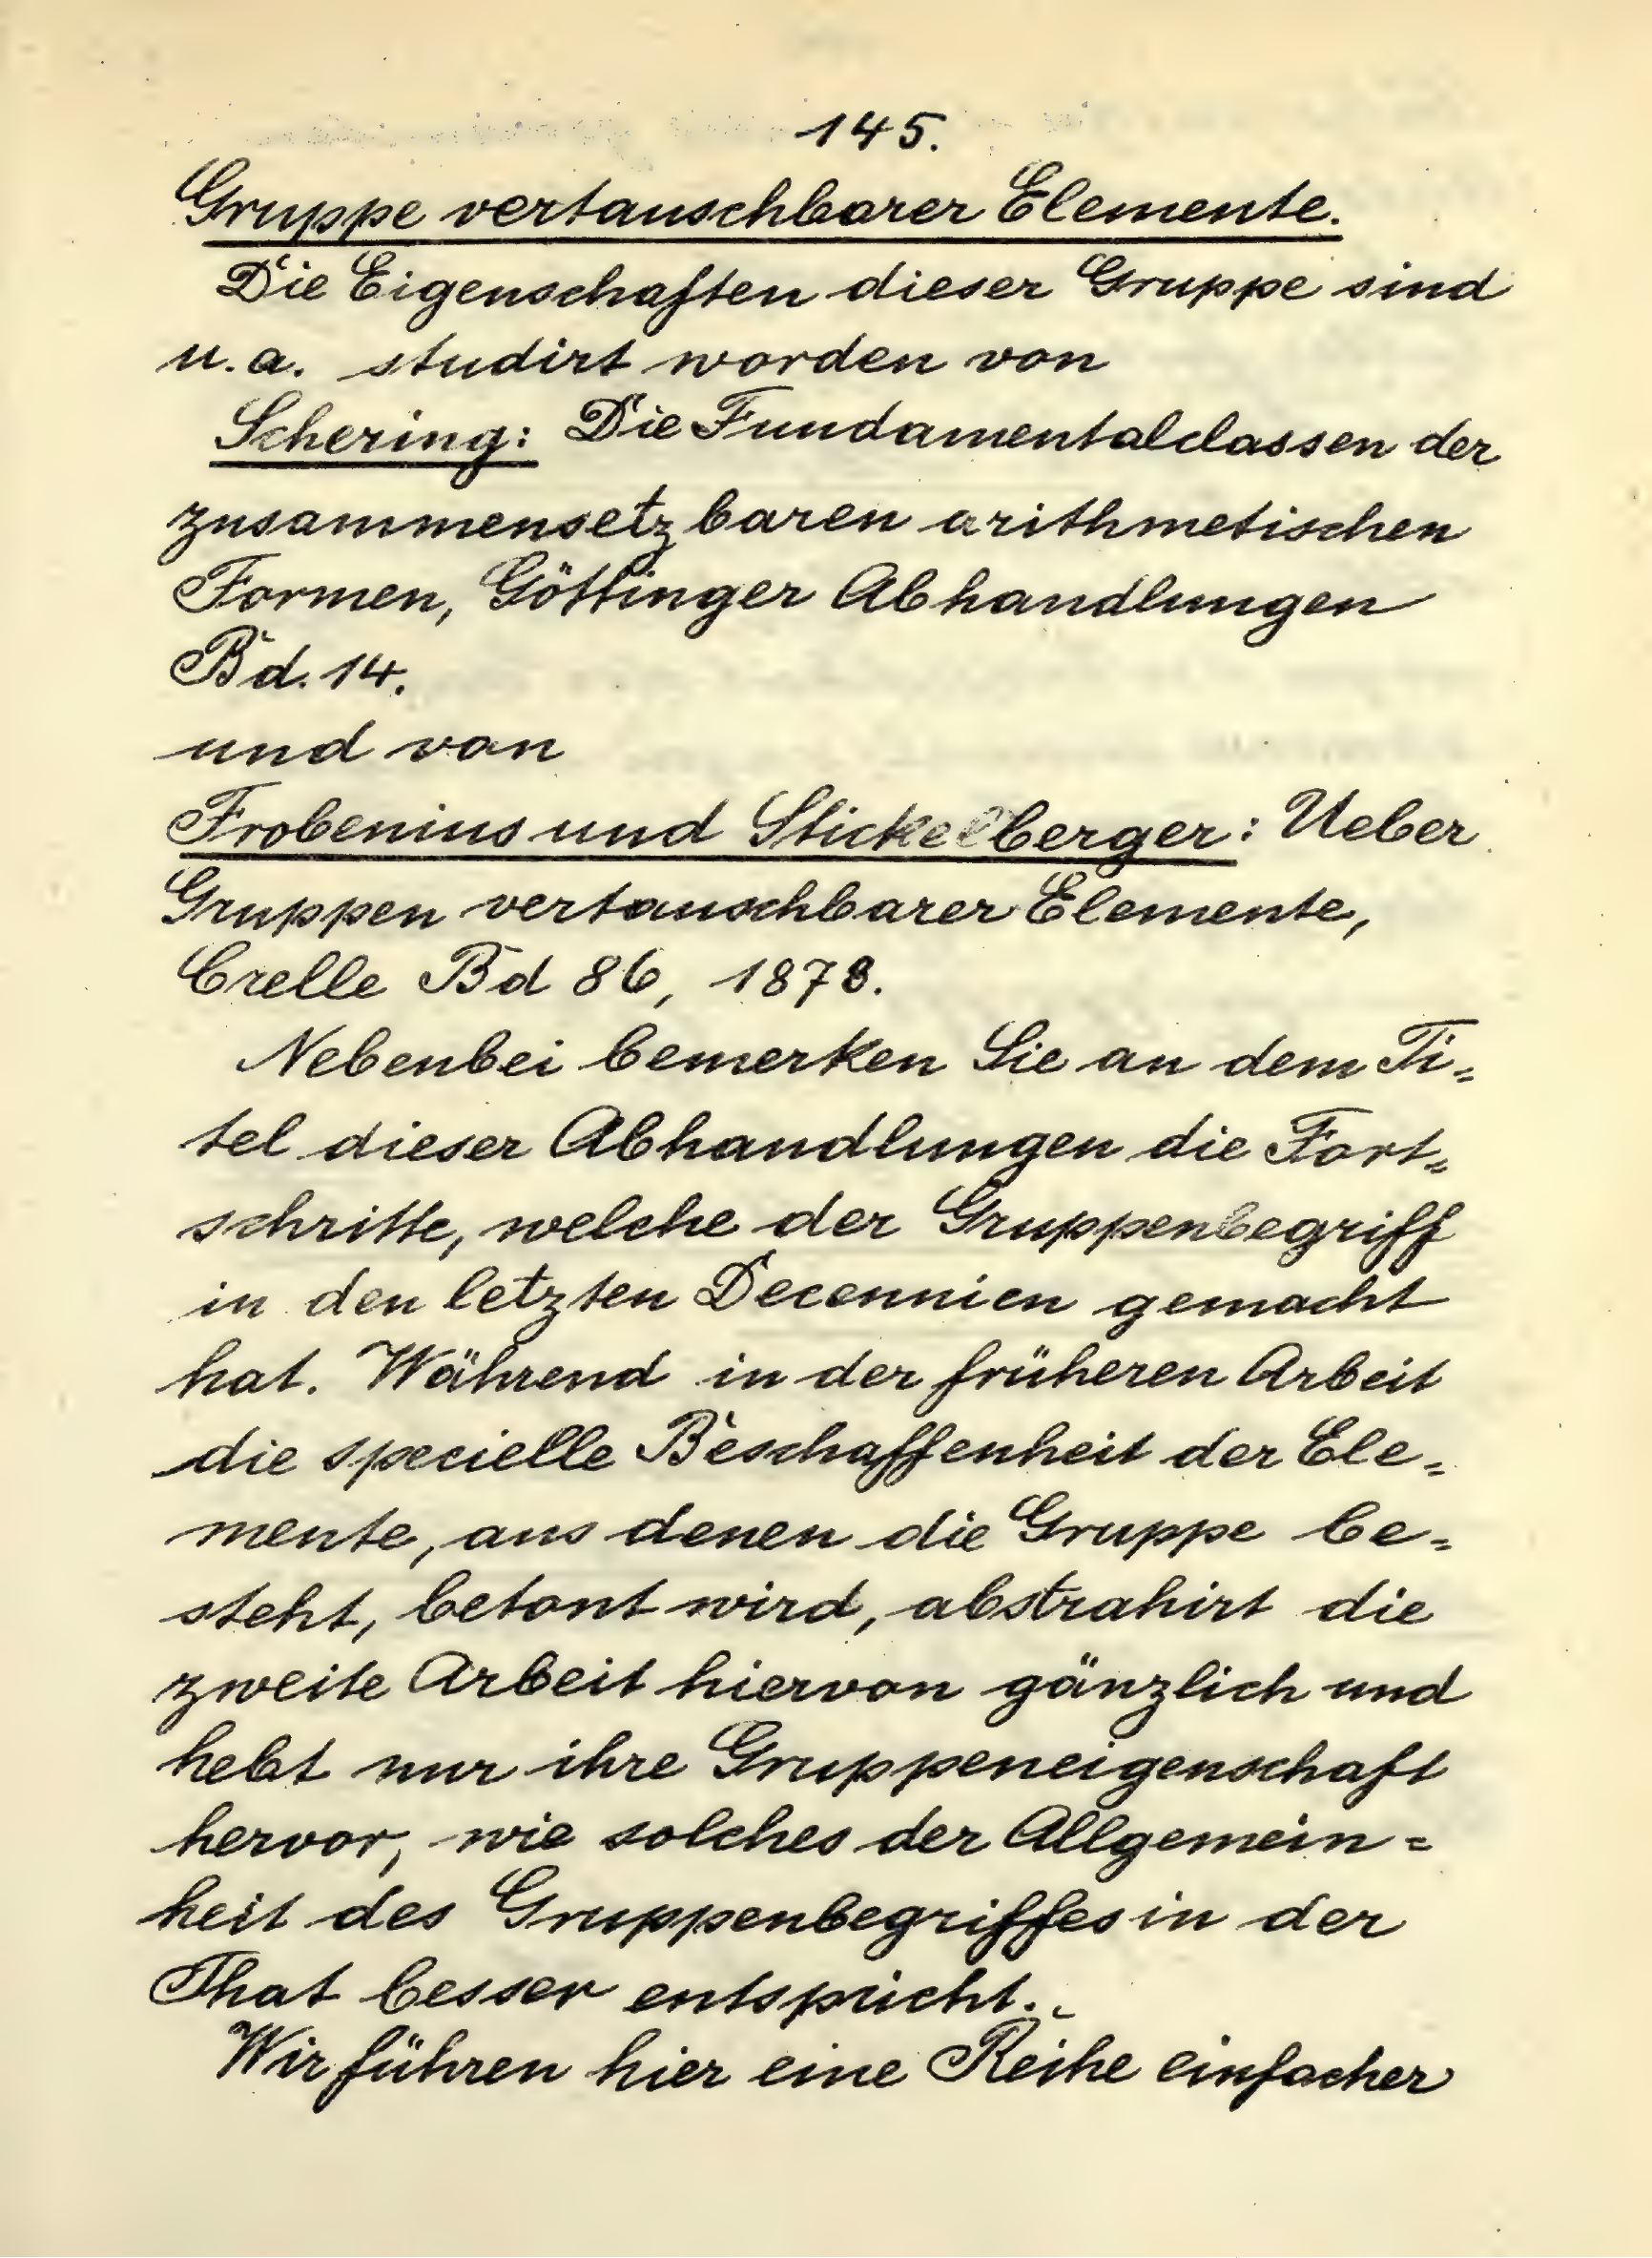 145.
Gruppe vertauschbarer Elemente.
Die Eigenschaften dieser Gruppe sind
u.a. studirt worden von
Schering: Die Fundamentalclassen der
zusammensetzbaren arithmetischen
Formen, Göttinger Abhandlungen
Bd. 14.
und von
Frobenius und Stickelberger: Ueber
Gruppen vertauschbarer Elemente,
Crelle Bd 86, 1878.
Nebenbei bemerken Sie an dem Ti=
tel dieser Abhandlungen die Fort=
schritte, welche der Gruppenbegriff
in den letzten Decennien gemacht
hat. Während in der früheren Arbeit
die specielle Beschaffenheit der Ele=
mente, aus denen die Gruppe be=
steht, betont wird, abstrahirt die
zweite Arbeit hiervon gänzlich und
hebt nur ihre Gruppeneigenschaft
hervor, wie solches der Allgemein=
heit des Gruppenbegriffes in der
That besser entspricht.
Wir führen hier eine Reihe einfacher